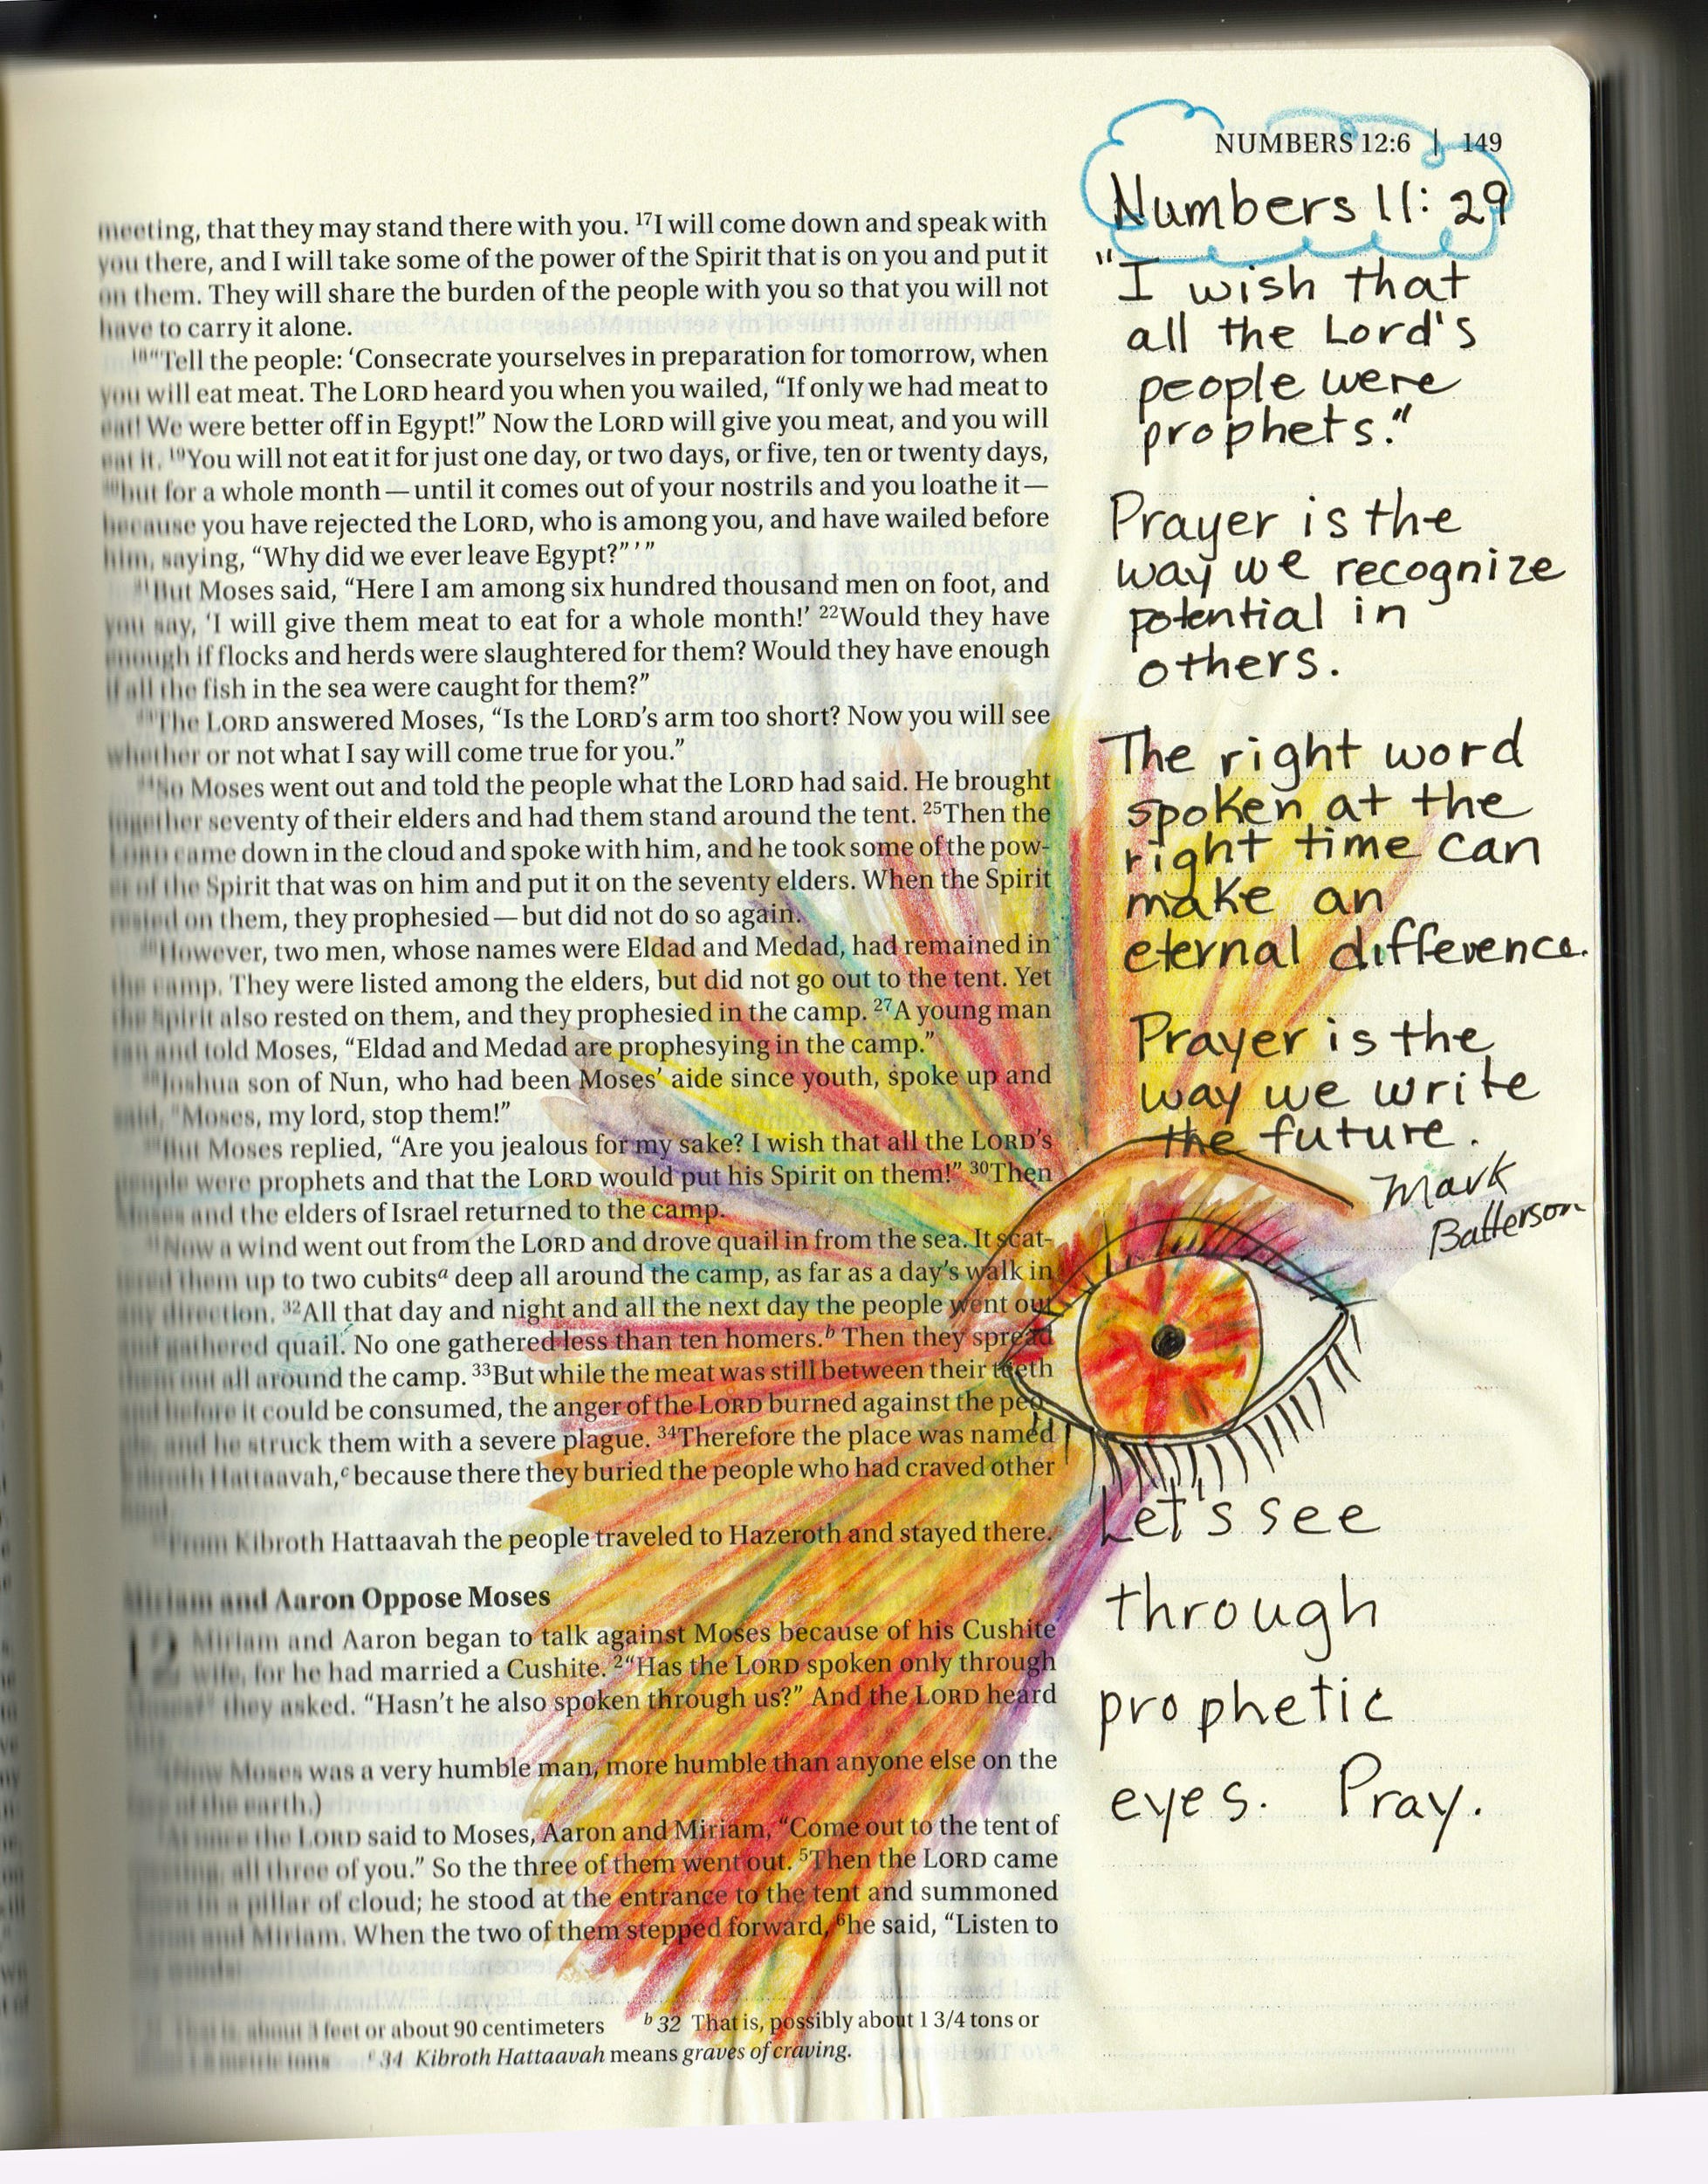 NUMBERS 12:6 | 149
meeting, that they may stand there with you. 17I will come down and speak with
you there, and I will take some of the power of the Spirit that is on you and put it
on them. They will share the burden of the people with you so that you will not
have to carry it alone.
18“Tell the people: ‘Consecrate yourselves in preparation for tomorrow, when
you will eat meat. The LORD heard you when you wailed, “If only we had meat to
eat! We were better off in Egypt!” Now the LORD will give you meat, and you will
eat it. 19You will not eat it for just one day, or two days, or five, ten or twenty days,
20but for a whole month — until it comes out of your nostrils and you loathe it —
because you have rejected the LORD, who is among you, and have wailed before
him, saying, “Why did we ever leave Egypt?” ’ ”
21But Moses said, “Here I am among six hundred thousand men on foot, and
you say, ‘I will give them meat to eat for a whole month!’ 22Would they have
enough if flocks and herds were slaughtered for them? Would they have enough
if all the fish in the sea were caught for them?”
23The LORD answered Moses, “Is the LORD’s arm too short? Now you will see
whether or not what I say will come true for you.”
24So Moses went out and told the people what the LORD had said. He brought
together seventy of their elders and had them stand around the tent. 25Then the
LORD came down in the cloud and spoke with him, and he took some of the pow-
er of the Spirit that was on him and put it on the seventy elders. When the Spirit
rested on them, they prophesied — but did not do so again.
26However, two men, whose names were Eldad and Medad, had remained in
the camp. They were listed among the elders, but did not go out to the tent. Yet
the Spirit also rested on them, and they prophesied in the camp. 27A young man
ran and told Moses, “Eldad and Medad are prophesying in the camp.”
28Joshua son of Nun, who had been Moses’ aide since youth, spoke up and
said, “Moses, my lord, stop them!”
29But Moses replied, “Are you jealous for my sake? I wish that all the LORD’s
people were prophets and that the LORD would put his Spirit on them!” 30Then
Moses and the elders of Israel returned to the camp.
31Now a wind went out from the LORD and drove quail in from the sea. It scat-
tered them up to two cubitsa deep all around the camp, as far as a day’s walk in
any direction. 32All that day and night and all the next day the people went out
and gathered quail. No one gathered less than ten homers.b Then they spread
them out all around the camp. 33But while the meat was still between their teeth
and before it could be consumed, the anger of the LORD burned against the peo-
ple, and he struck them with a severe plague. 34Therefore the place was named
Kibroth Hattaavah,c because there they buried the people who had craved other
food.
35From Kibroth Hattaavah the people traveled to Hazeroth and stayed there.
Miriam and Aaron Oppose Moses
12 Miriam and Aaron began to talk against Moses because of his Cushite
wife, for he had married a Cushite. 2“Has the LORD spoken only through
they asked. “Hasn’t he also spoken through us?” And the LORD heard
this.
Moses was a very humble man, more humble than anyone else on the
face of the earth.)
At once the LORD said to Moses, Aaron and Miriam, “Come out to the tent of
meeting, all three of you.” So the three of them went out. 5Then the LORD came
down in a pillar of cloud; he stood at the entrance to the tent and summoned
Aaron and Miriam. When the two of them stepped forward, 6he said, “Listen to
my words:
That is, about 3 feet or about 90 centimeters b 32 That is, possibly about 1 3/4 tons or
metric tons c 34 Kibroth Hattaavah means graves of craving.
Numbers 11:29
"I wish that
all the Lord's
people were
prophets."
Prayer is the
way we recognize
potential in
others.
The right word
spoken at the
right time can
make an
eternal difference.
Prayer is the
way we write
the future.
Mark
Batterson
Let's see
through
prophetic
eyes. Pray.